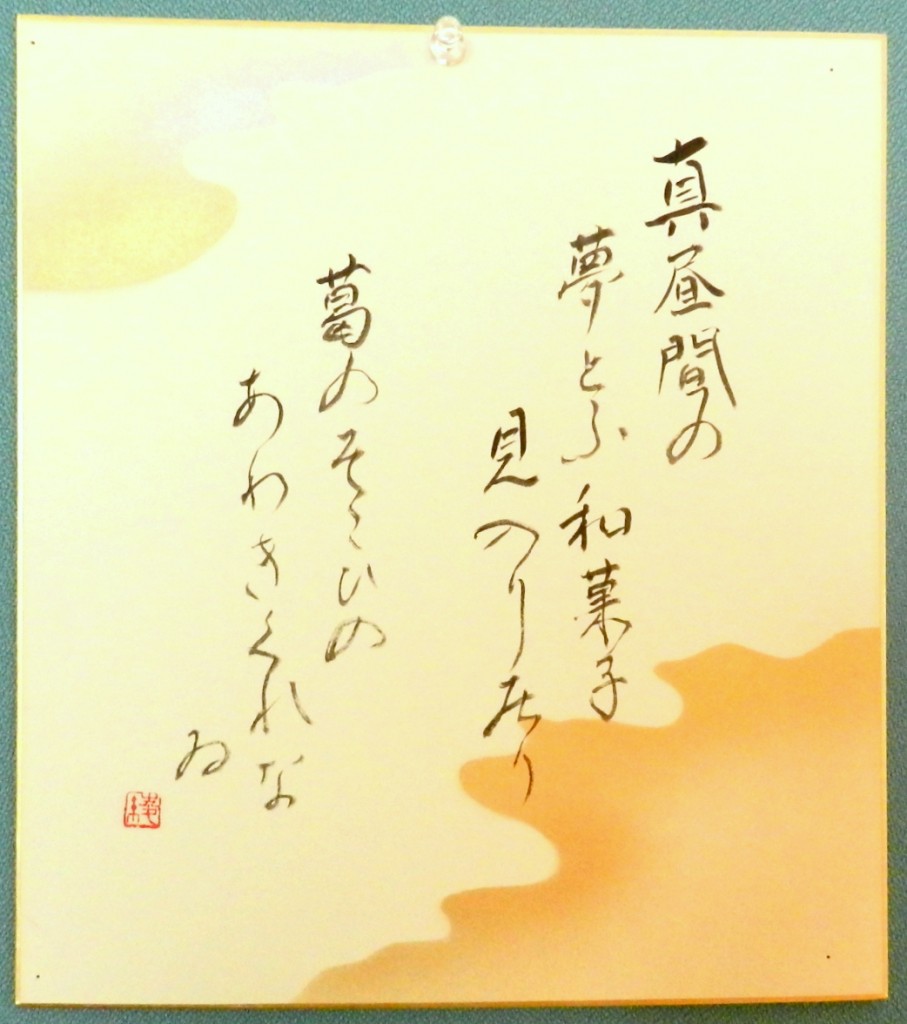 真昼間の
夢とふ和菓子
見つゝり居り
葛のそこひの
あわきくれな
ゐ